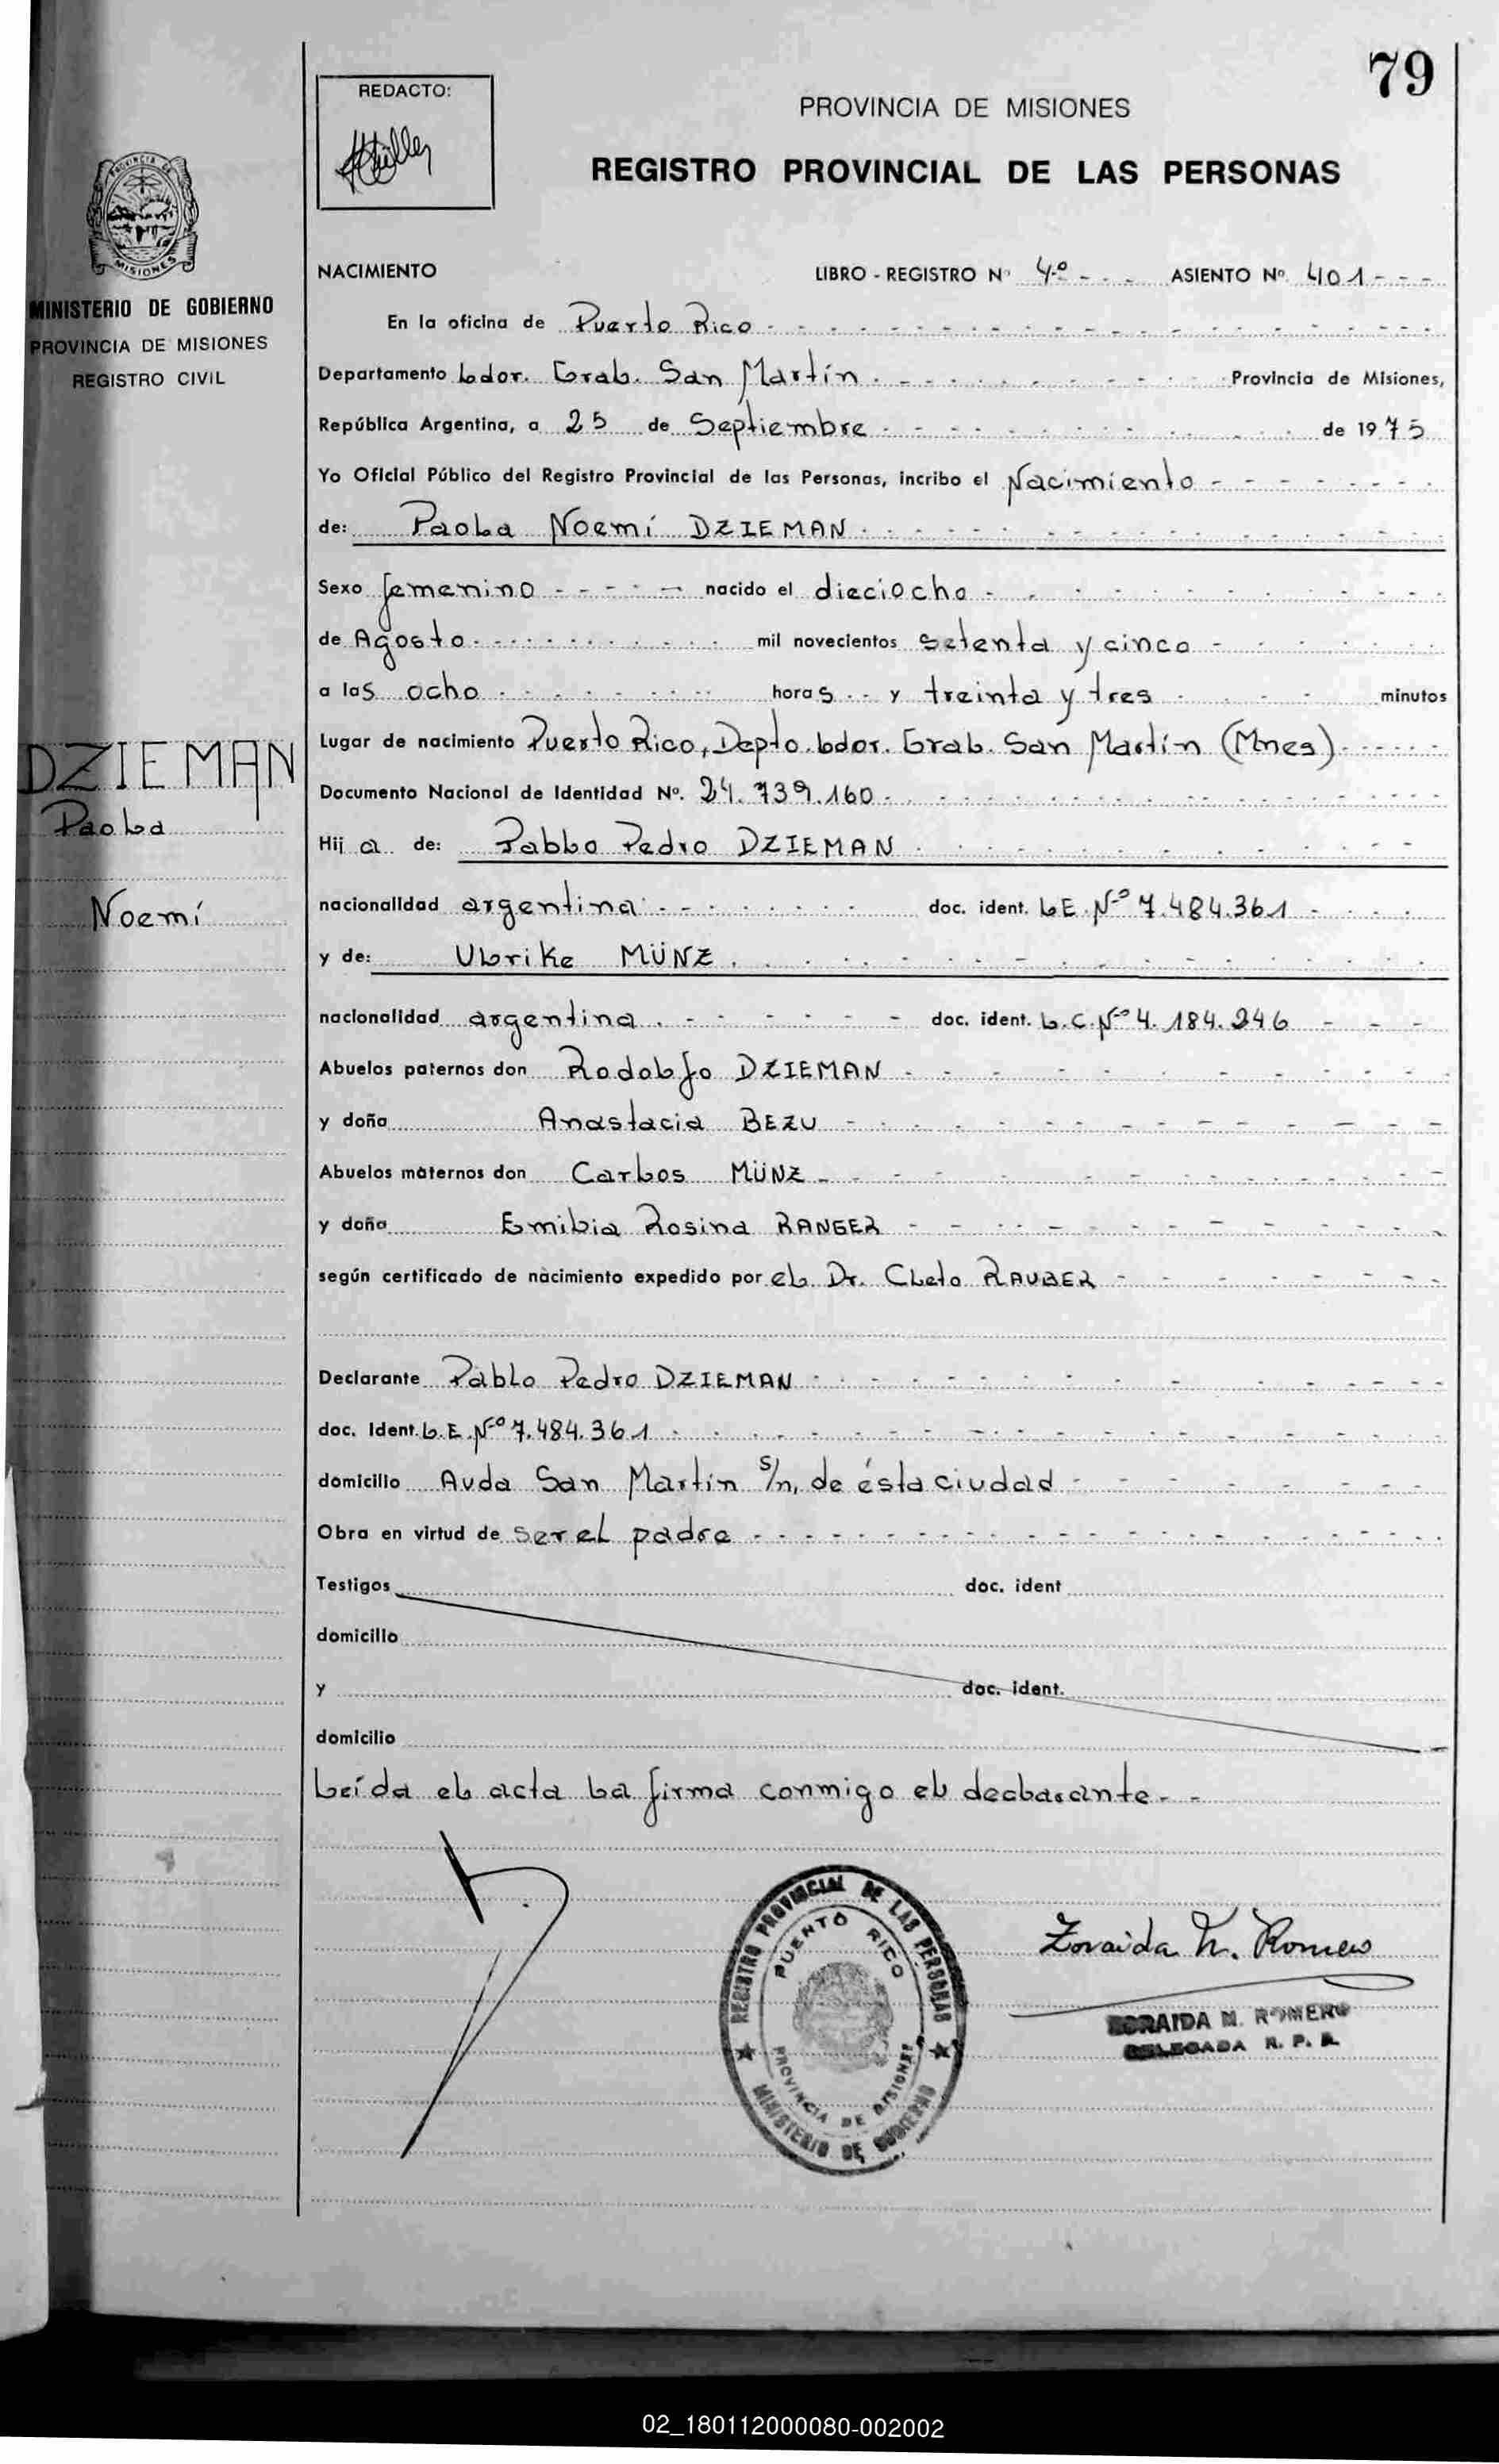 79
REDACTO:
PROVINCIA DE MISIONES
REGISTRO PROVINCIAL DE LAS PERSONAS
PROVINCIA DE
MISIONES
MINISTERIO DE GOBIERNO
PROVINCIA DE MISIONES
REGISTRO CIVIL
NACIMIENTO LIBRO - REGISTRO Nº 4º - - - ASIENTO Nº 401 - - -
En la oficina de Puerto Rico
Departamento Ldor. Gral. San Martín Provincia de Misiones,
República Argentina, a 25 de Septiembre de 1975
Yo Oficial Público del Registro Provincial de las Personas, incribo el Nacimiento
de: Paola Noemí DZIEMAN
Sexo femenino nacido el dieciocho
de Agosto mil novecientos setenta y cinco
a las ocho horas y treinta y tres minutos
Lugar de nacimiento Puerto Rico, Depto. Ldor. Gral. San Martín (Mnes)
DZIEMAN
Paola
Noemí
Documento Nacional de Identidad Nº. 24.739.160
Hija de: Pablo Pedro DZIEMAN
nacionalidad argentina doc. ident. L.E. Nº 7.484.361
y de: Ulrike MÜNZ
nacionalidad argentina doc. ident. L.C. Nº 4.184.246
Abuelos paternos don Rodolfo DZIEMAN
y doña Anastacia BEZU
Abuelos maternos don Carlos MÜNZ
y doña Emilia Rosina RANGER
según certificado de nacimiento expedido por el Dr. Cleto RAUBER
Declarante Pablo Pedro DZIEMAN
doc. Ident. L.E. Nº 7.484.361
domicilio Avda San Martín s/n, de ésta ciudad
Obra en virtud de ser el padre
Testigos doc. ident
domicilio
y doc. ident.
domicilio
Leída el acta la firma conmigo el declarante.
REGISTRO PROVINCIAL DE LAS PERSONAS
PUERTO RICO
PROVINCIA DE MISIONES
MINISTERIO DE GOBIERNO
Zoraida M. Romero
ZORAIDA M. ROMERO
DELEGADA R. P. P.
02_180112000080-002002